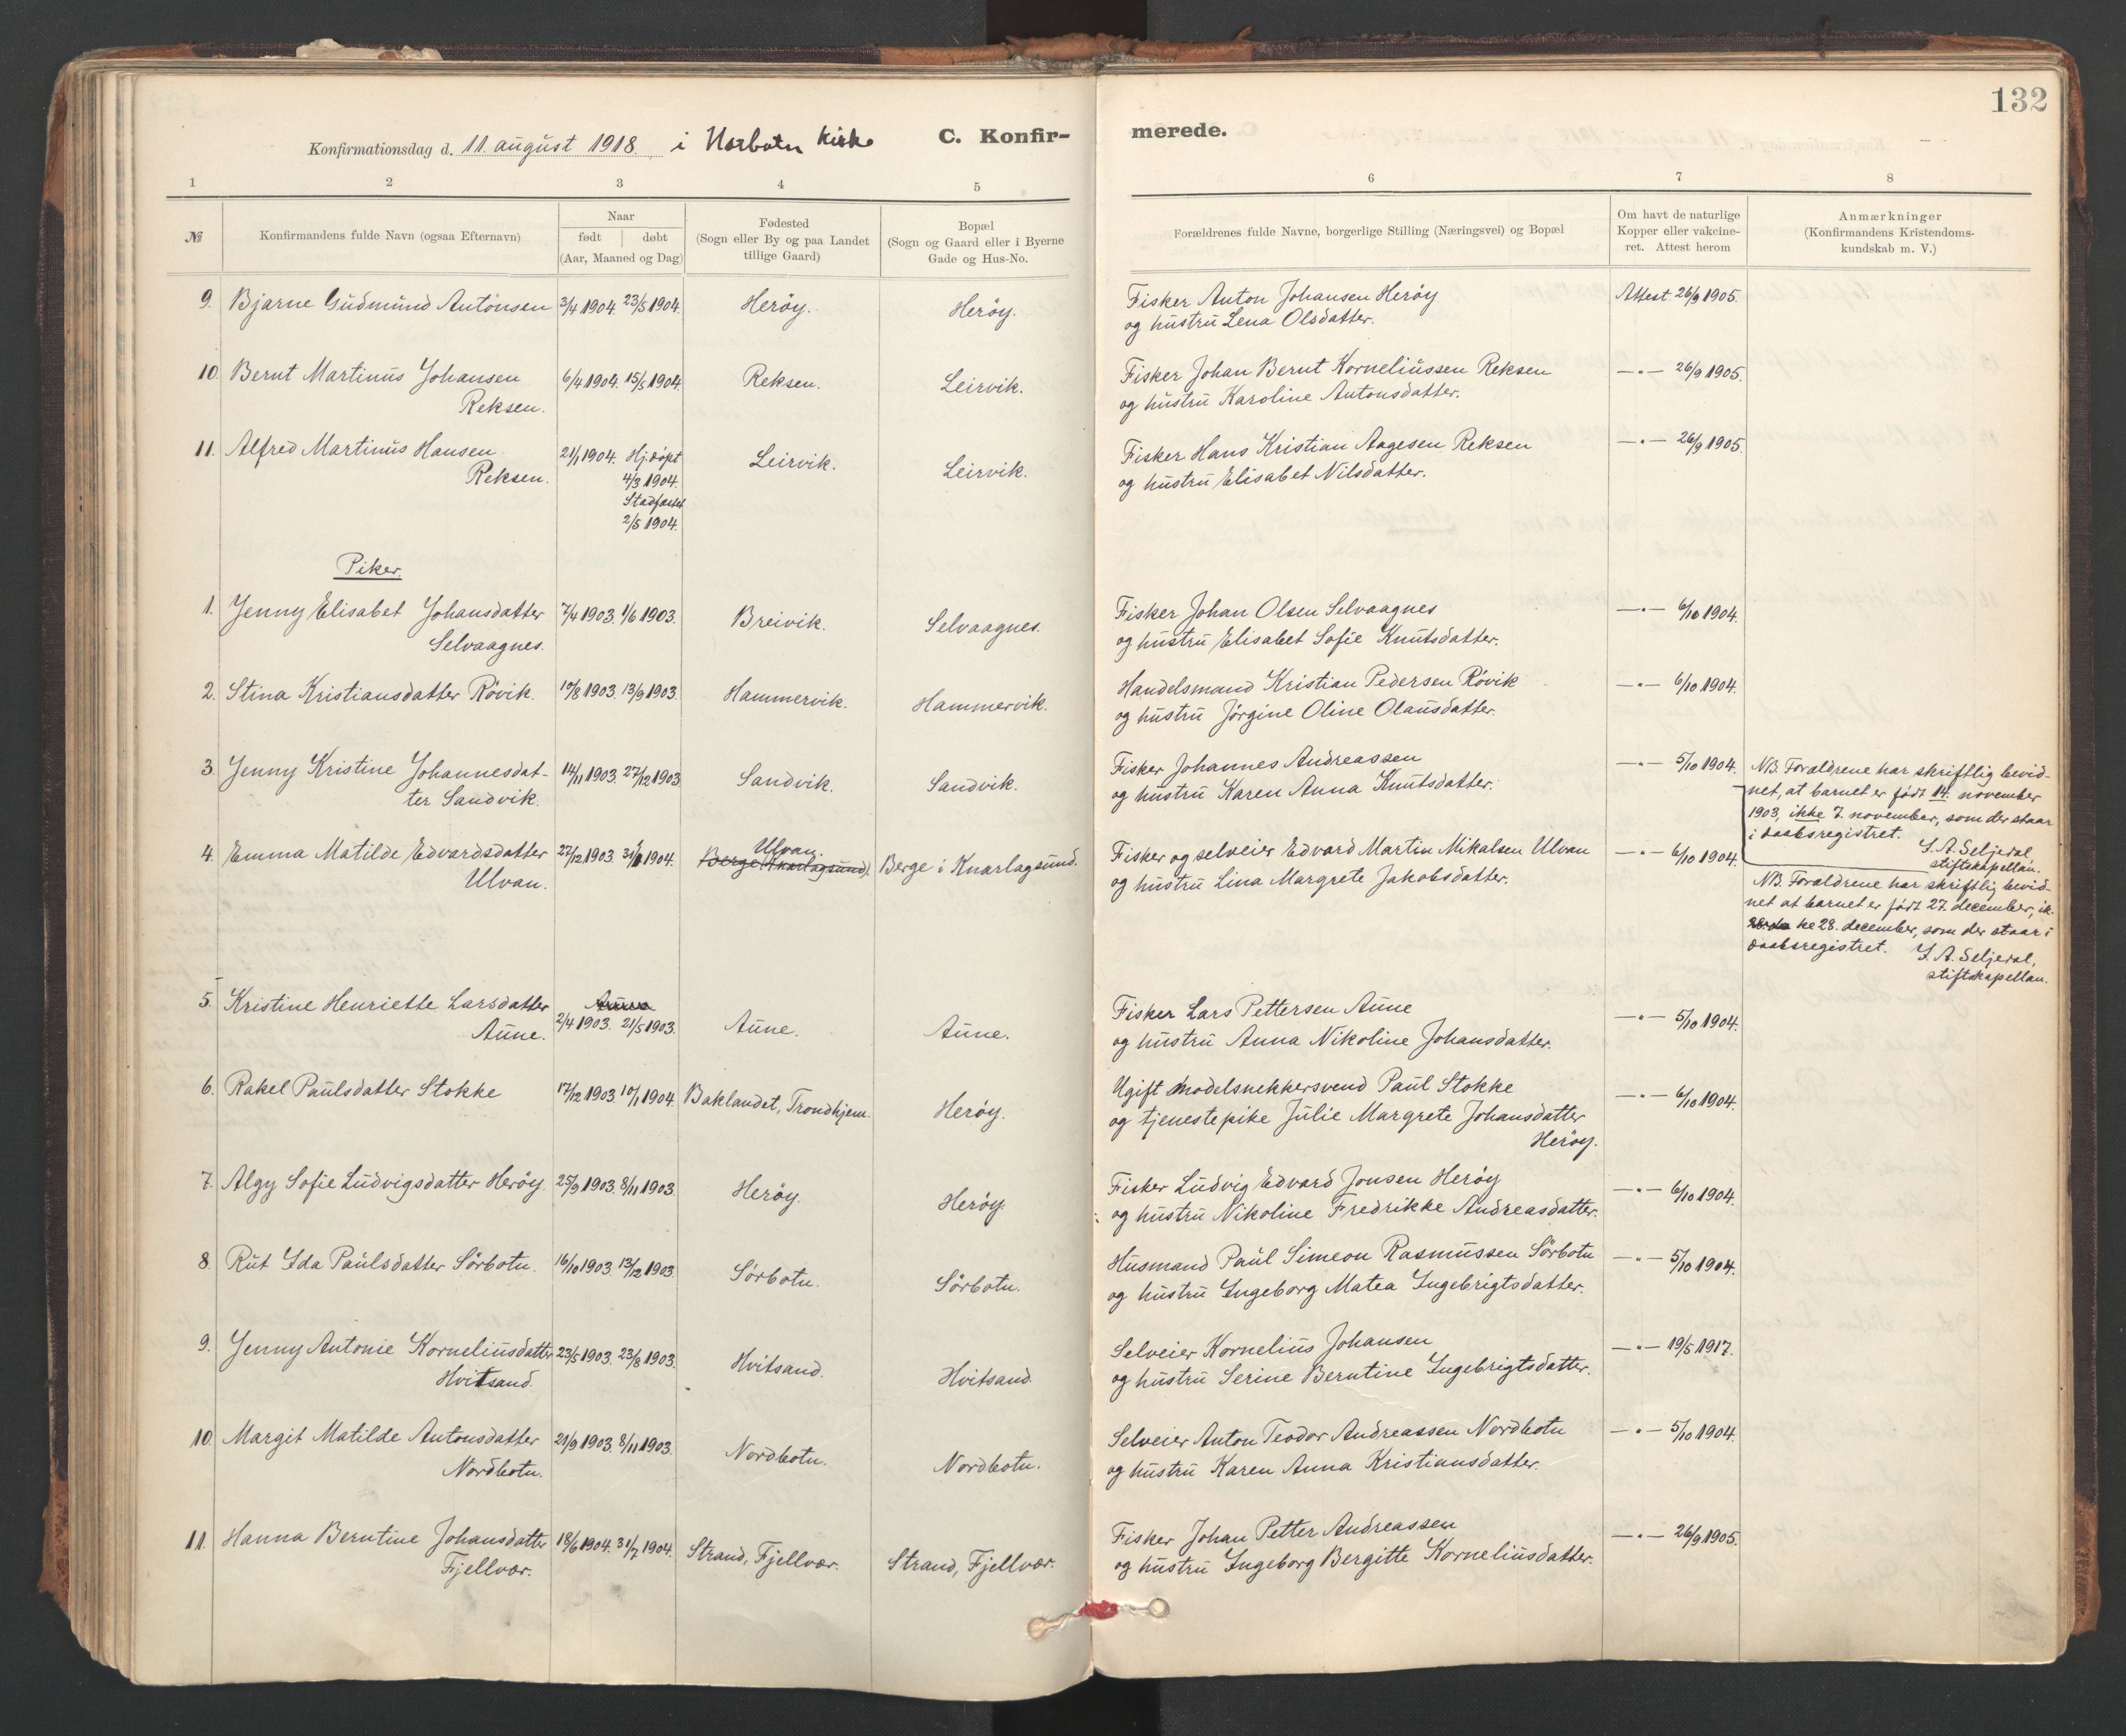 132
Konfirmationsdag d. 11. august 1918. i Norbotn kirke
C. Konfir-
merede.
1 2 3 4 5 6 7 8
№
Konfirmandens fulde Navn (ogsaa Efternavn)
Naar
født | døbt
(Aar, Maaned og Dag)
Fødested
(Sogn eller By og paa Landet
tillige Gaard)
Bopæl
(Sogn og Gaard eller i Byerne
Gade og Hus-No.
Forældrenes fulde Navne, borgerlige Stilling (Næringsvei) og Bopæl
Om havt de naturlige
Kopper eller vakcine-
ret. Attest herom
Anmærkninger
(Konfirmandens Kristendoms-
kundskab m. V.)
9. Bjarne Gudmund Antonsen 3/4 1904. 23/5 1904. Herøy. Herøy. Fisker Anton Johansen Herøy Attest 26/9 1905.
og hustru Lena Olsdatter.
10. Bernt Martinus Johansen 6/4 1904. 15/5 1904 Reksen. Leirvik. Fisker Johan Bernt Korneliussen Reksen —"— 26/9 1905.
Reksen. og hustru Karoline Antonsdatter.
11. Alfred Martinus Hansen 21/1 1904. Hj.døpt Leirvik. Leirvik. Fisker Hans Kristian Aagesen Reksen —"— 26/9 1905.
Reksen. 4/3 1904. og hustru Elisabet Nilsdatter.
Stadfæstet
2/5 1904.
Piker.
1. Jenny Elisabet Johansdatter 7/4 1903. 1/6 1903. Breivik. Selvaagnes. Fisker Johan Olsen Selvaagnes —"— 6/10 1904.
Selvaagnes. og hustru Elisabet Sofie Knutsdatter.
2. Stina Kristiansdatter Røvik. 10/8 1903 13/9 1903. Hammervik. Hammervik. Handelsmand Kristian Pedersen Røvik —"— 6/10 1904.
og hustru Jørgine Oline Olausdatter.
3. Jenny Kristine Johannesdat- 14/11 1903. 27/12 1903 Sandvik. Sandvik. Fisker Johannes Andreassen —"— 5/10 1904.
ter Sandvik. og hustru Karen Anna Knutsdatter.
NB. Forældrene har skriftlig bevid-
net, at barnet er født 14. november
1903, ikke 7. november, som der staar
i daabsregistret.
I. A. Seljeral,
stiftskapellan.
4. Emma Matilde Edvardsdatter 27/12 1903 31/1 1904. Ulvan. Berge i Knarlagsund. Fisker og selveier Edvard Martin Mikalsen Ulvan —"— 6/10 1904.
Ulvan. Berge (Knarlagsund). og hustru Lina Margrete Jakobsdatter.
NB. Forældrene har skriftlig bevid-
net at barnet er født 27. december, ik-
ke 28. december, som der staar i
daabsregistret. I. A. Seljeral,
stiftskapellan.
5. Kristine Henriette Larsdatter Aune
Aune. 2/4 1903. 21/5 1903. Aune. Aune. Fisker Lars Pettersen Aune —"— 5/10 1904.
og hustru Anna Nikoline Johansdatter.
6. Rakel Paulsdatter Stokke 17/12 1903. 10/1 1904. Baklandet, Trondhjem. Herøy. Ugift modelsnekkersvend Paul Stokke —"— 6/10 1904.
og tjenestepike Julie Margrete Johansdatter
Herøy.
7. Algy Sofie Ludvigsdatter Herøy. 25/9 1903. 8/11 1903. Herøy. Herøy. Fisker Ludvig Edvard Jonsen Herøy —"— 6/10 1904.
og hustru Nikoline Fredrikke Andreasdatter.
8. Rut Ida Paulsdatter Sørbotn. 16/10 1903. 13/12 1903. Sørbotn. Sørbotn. Husmand Paul Simeon Rasmussen Sørbotn —"— 5/10 1904.
og hustru Ingeborg Matea Ingebrigtsdatter.
9. Jenny Antonie Korneliusdatter 23/5 1903. 23/8 1903. Hvitsand. Hvitsand. Selveier Kornelius Johansen —"— 19/5 1917.
Hvitsand. og hustru Serine Berntine Ingebrigtsdatter.
10. Margit Matilde Antonsdatter 21/9 1903. 8/11 1903. Nordbotn. Nordbotn. Selveier Anton Teodor Andreassen Nordbotn —"— 5/10 1904.
Nordbotn. og hustru Karen Anna Kristiansdatter.
11. Hanna Berntine Johansdatter 18/6 1904. 31/7 1904. Strand, Fjellvær. Strand, Fjellvær. Fisker Johan Petter Andreassen —"— 26/9 1905.
Fjellvær. og hustru Ingeborg Bergitte Korneliusdatter.